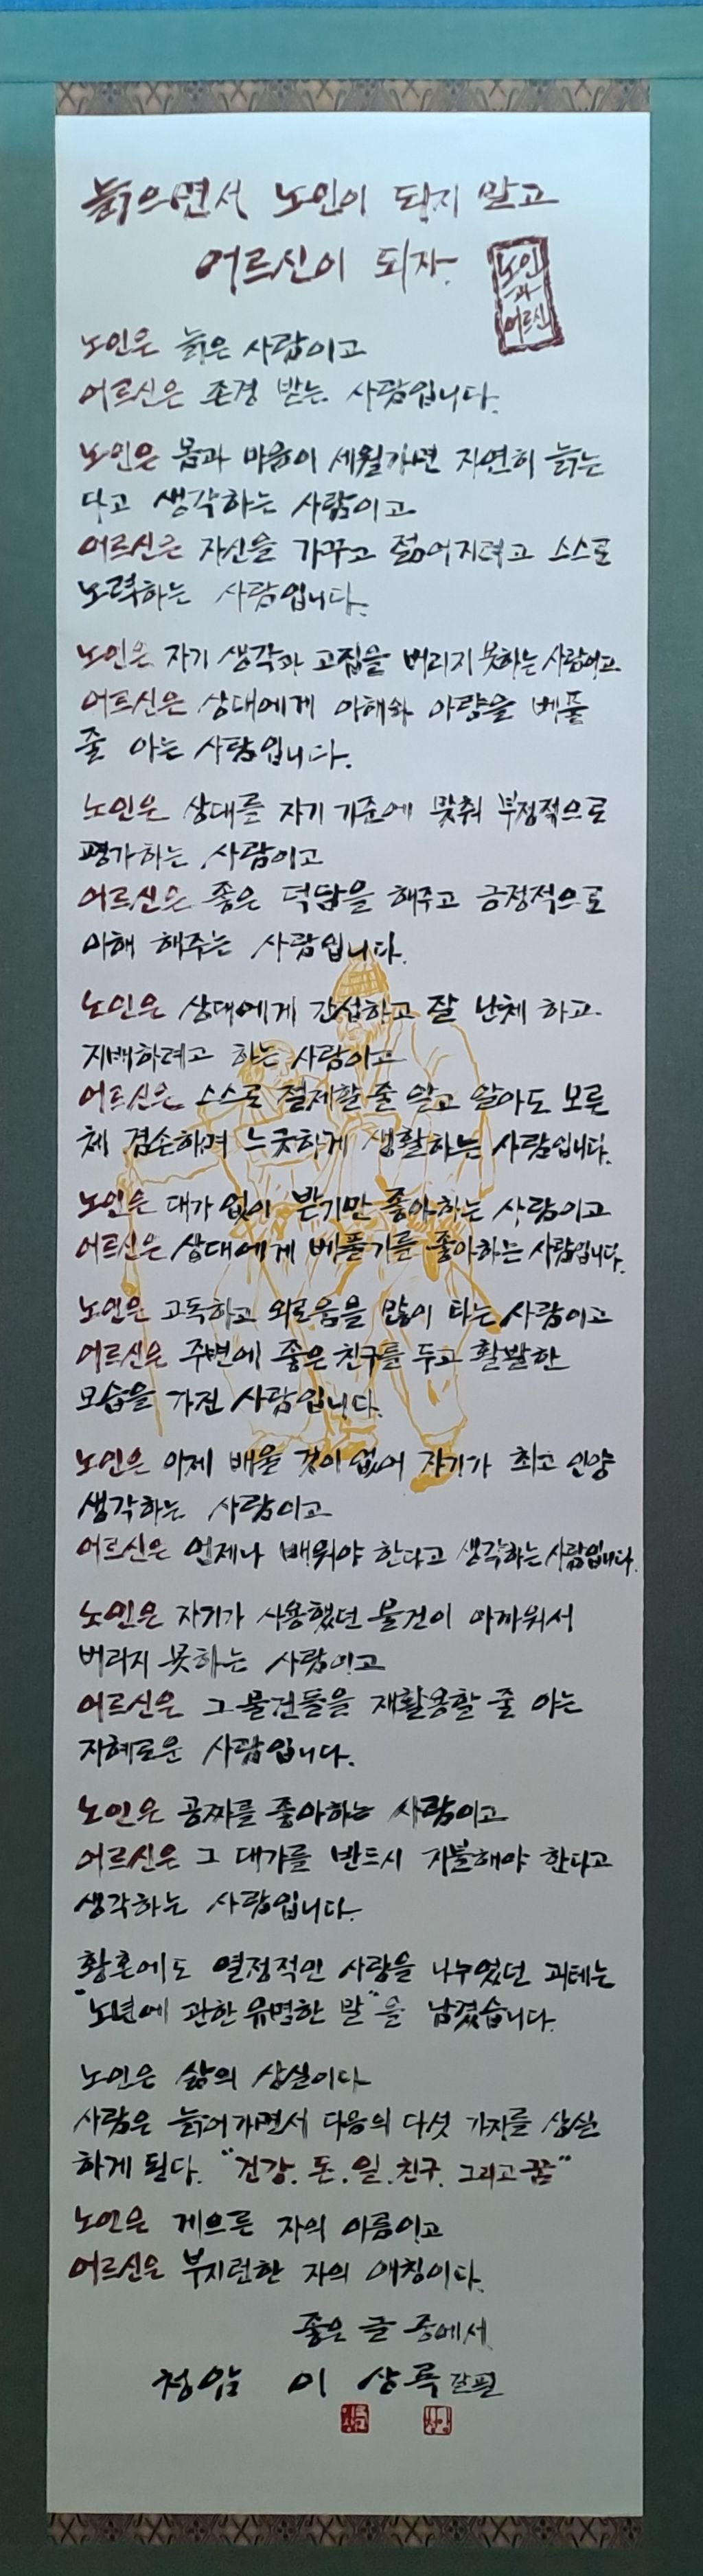 늙으면서 노인이 되지 말고
어르신이 되자.
노인
과
어르신
노인은 늙은 사람이고
어르신은 존경 받는 사람입니다.
노인은 몸과 마음이 세월가면 자연히 늙는
다고 생각하는 사람이고
어르신은 자신을 가꾸고 젊어지려고 스스로
노력하는 사람입니다.
노인은 자기 생각과 고집을 버리지 못하는 사람이고
어르신은 상대에게 이해와 아량을 베풀
줄 아는 사람입니다.
노인은 상대를 자기 기준에 맞춰 부정적으로
평가하는 사람이고
어르신은 좋은 덕담을 해주고 긍정적으로
이해 해주는 사람입니다.
노인은 상대에게 간섭하고 잘 난체 하고
지배하려고 하는 사람이고
어르신은 스스로 절제할 줄 알고 알아도 모른
체 겸손하며 느긋하게 생활하는 사람입니다.
노인은 대가 없이 받기만 좋아하는 사람이고
어르신은 상대에게 베풀기를 좋아하는 사람입니다.
노인은 고독하고 외로움을 많이 타는 사람이고
어르신은 주변에 좋은 친구를 두고 활발한
모습을 가진 사람입니다.
노인은 이제 배울 것이 없어 자기가 최고 인양
생각하는 사람이고
어르신은 언제나 배워야 한다고 생각하는 사람입니다.
노인은 자기가 사용했던 물건이 아까워서
버리지 못하는 사람이고
어르신은 그 물건들을 재활용할 줄 아는
지혜로운 사람입니다.
노인은 공짜를 좋아하는 사람이고
어르신은 그 대가를 반드시 지불해야 한다고
생각하는 사람입니다.
황혼에도 열정적인 사랑을 나누었던 괴테는
"노년에 관한 유명한 말"을 남겼습니다.
노인은 삶의 상실이다
사람은 늙어가면서 다음의 다섯 가지를 상실
하게 된다. "건강. 돈. 일. 친구. 그리고 꿈"
노인은 게으른 자의 이름이고
어르신은 부지런한 자의 애칭이다.
좋은 글 중에서
청암 이 상록 갈필